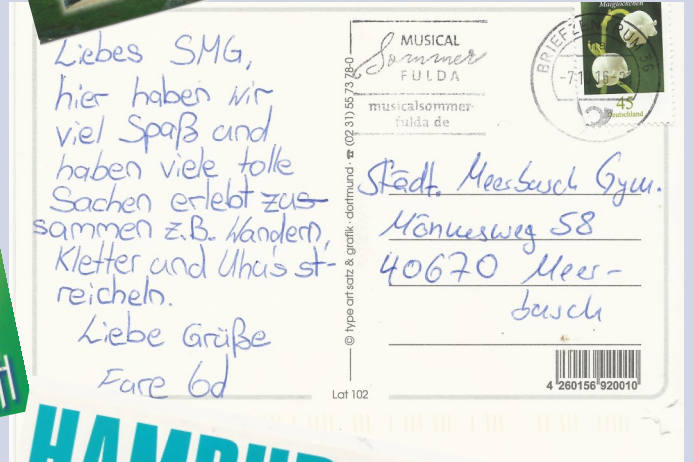 Liebes SMG,
hier haben wir
viel Spaß und
haben viele tolle
Sachen erlebt zus-
sammen z.B. Wandern,
Kletter und Uhu's st-
reicheln.
Liebe Grüße
Eure 6d
MUSICAL
Sommer
FULDA
musicalsommer-
fulda de
BRIEFZENTRUM 36
Maiglöckchen
45
Deutschland
© type art satz & grafik · dortmund · ☎ (02 31) 55 73 78-0
Städt. Meerbusch Gym.
Mönkesweg 58
40670 Meer-
busch
4 260156 920010
Lat 102